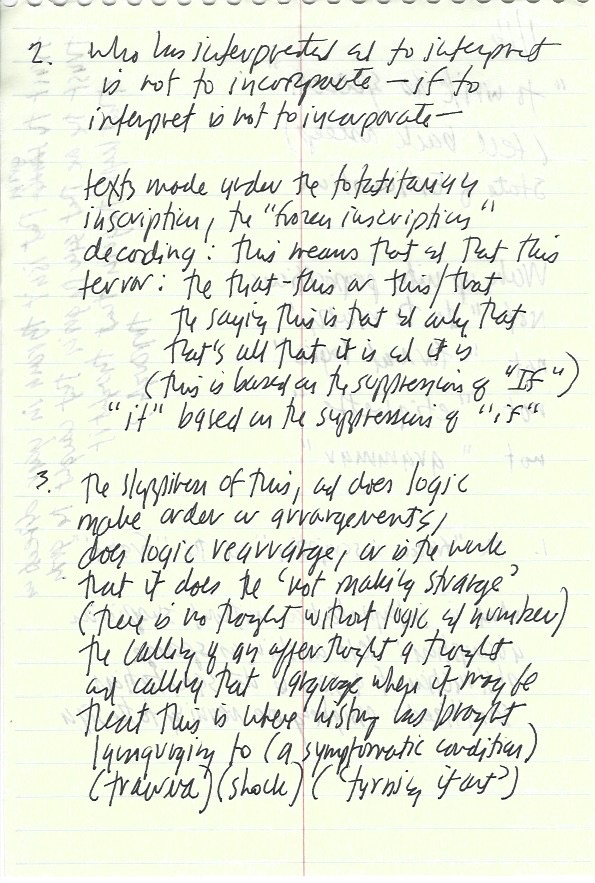 2. who has interpreted ad to interpret
is not to incorporate — if to
interpret is not to incorporate —
texts made under the totalitarian
inscription, the "frozen inscription"
decoding: this means that ad that this
terror: the that-this or this/that
the saying this is that ad only that
that's all that it is ad it is
(this is based on the suppression of "If")
"it" based on the suppression of "if"
3. the slippiness of this, ad does logic
make order or arrangements,
does logic rearrange, or is the work
that it does the 'not making strange'
(there is no thought without logic ad number)
the calling of an afterthought a thought
ad calling that language where it may be
that this is where history has brought
languaging to (a symptomatic condition)
(trauma) (shock) ("turning it out")